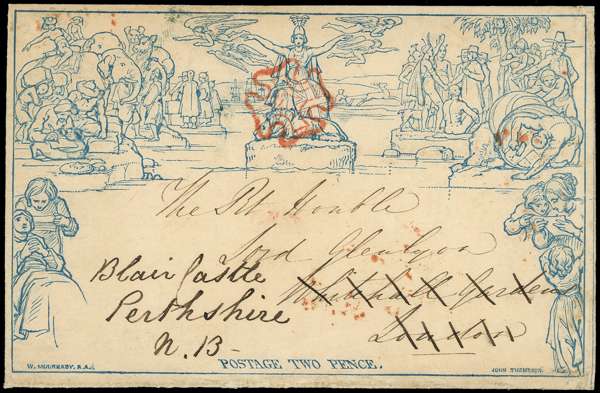 The Rt Honble
Lord Glenlyon
Whitehall Gardens
London
Blair Castle
Perthshire
N. B-
POSTAGE TWO PENCE.
W. MULREADY, R.A.
JOHN THOMPSON.